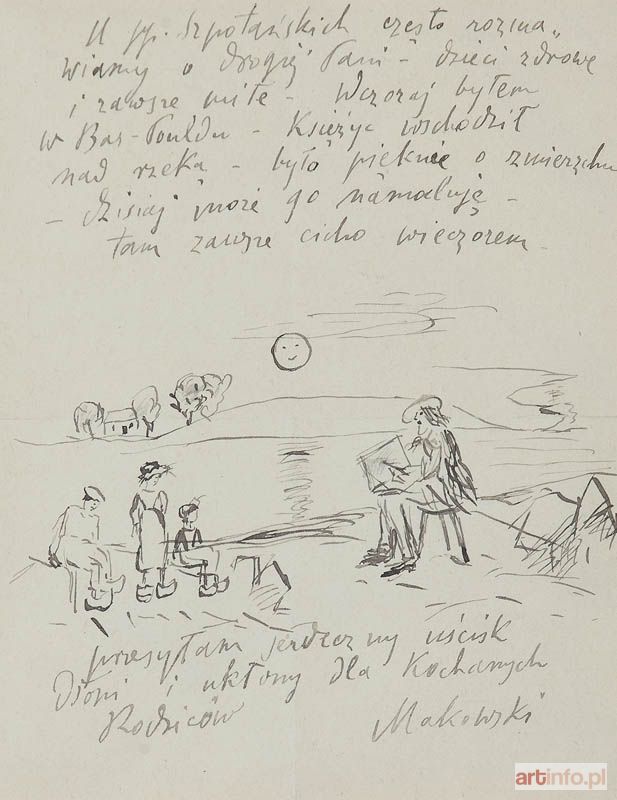 U pp. Szpotańskich często rozma„
wiamy o drogiej Pani – dzieci zdrowe
i zawsze miłe – Wczoraj byłem
w Bas-Pouldu – Księżyc wschodził
nad rzeką – było pięknie o zmierzchu
– dzisiaj może go namaluję –
tam zawsze cicho wieczorem –
przesyłam serdeczny uścisk
Dłoni i ukłony dla Kochanych
Rodziców Makowski
artinfo.pl